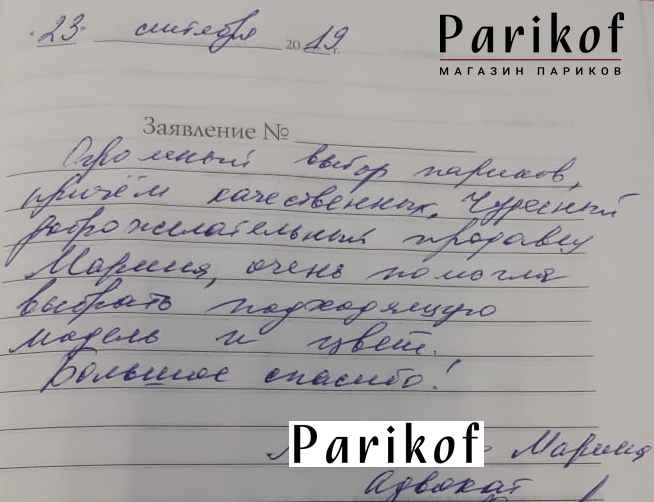 23 сентября 2019 г.
Parikof
МАГАЗИН ПАРИКОВ
Заявление №
Огромный выбор париков,
причём качественных. Чудесный
доброжелательный продавец
Марина, очень помогла
выбрать подходящую
модель и цвет.
Большое спасибо!
Parikof Марина
Адвокат